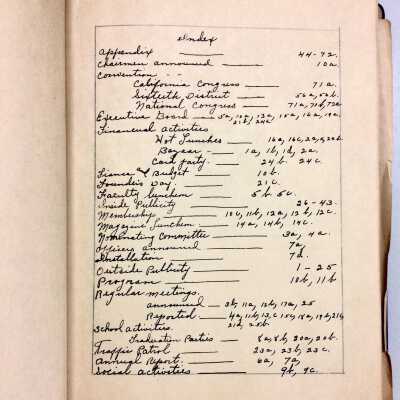 Index
Appendix — 44-72.
Chairmen announced — 10a.
Convention - -
California Congress — 71a.
Sixtieth District — 56a, 56b.
National Congress — 71a, 71b, 72a
Executive Board — 5a, 10a, 12a, 15a, 16a, 19a.
21b, 24a
Financial activities
Hot Lunches — 16a, 16c, 20a.
Bazaar — 1a, 1b, 1d, 2a.
Card party. — 24b 24c.
Finance & Budget — 10b.
Founder's Day. — 21c.
Faculty luncheon — 5b. 5c.
Inside Publicity — 26-43.
Membership — 10c, 11b, 12a, 12b, 12c.
Magazine Luncheon. — 14a, 14b, 14c.
Nominating Committee — 3a, 4a.
Officers announced — 7a,
Installation — 7d.
Outside Publicity — 1-25
Program — 10b, 11b
Regular meetings.
announced — 3b, 11a, 12b, 13a, 25
Reported. — 4a, 11b, 13c, 15c, 18a, 19b, 21b,
21d, 25b.
School activities.
Graduation Parties — 8a, 8b, 20a, 20b.
Traffic Patrol — 23a, 23b, 23c.
Annual Report. — 6a, 7a,
Social activities — 9b, 9c.